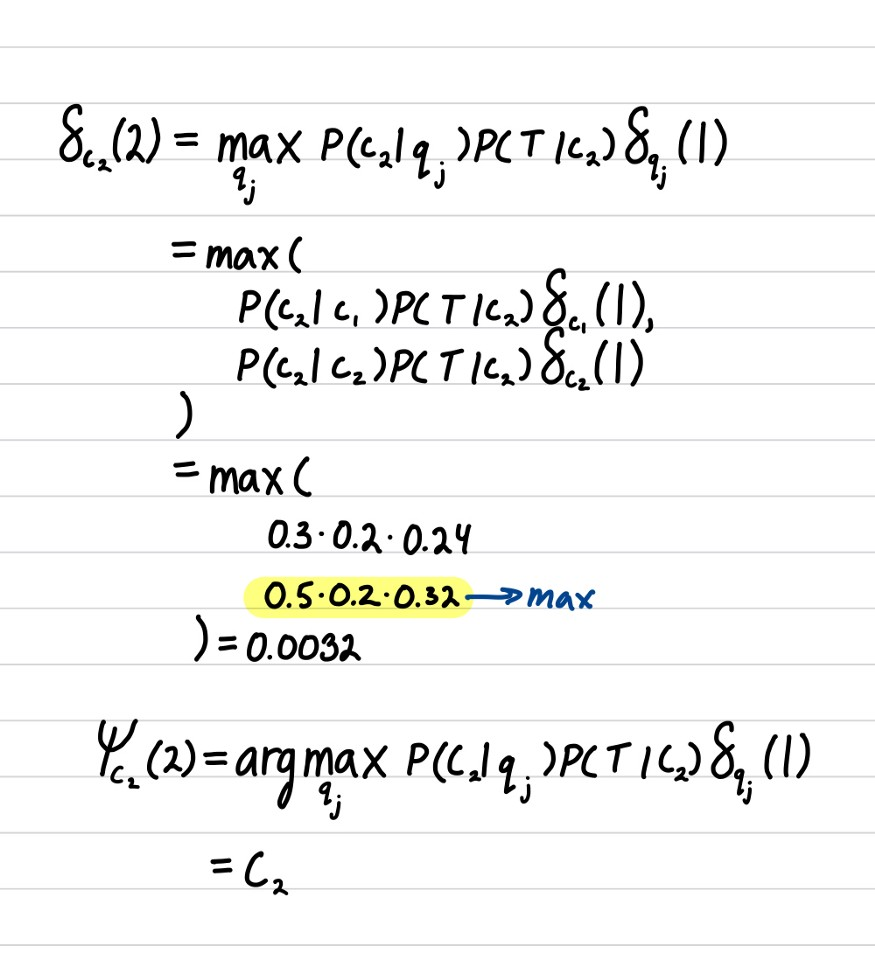 δ_{c₂}(2) = max_{q_j} P(c₂|q_j)P(T|c₂)δ_{q_j}(1)
= max(
P(c₂|c₁)P(T|c₂)δ_{c₁}(1),
P(c₂|c₂)P(T|c₂)δ_{c₂}(1)
)
= max(
0.3·0.2·0.24
0.5·0.2·0.32 → max
) = 0.0032
Ψ_{c₂}(2) = arg max_{q_j} P(C₂|q_j)P(T|C₂)δ_{q_j}(1)
= C₂